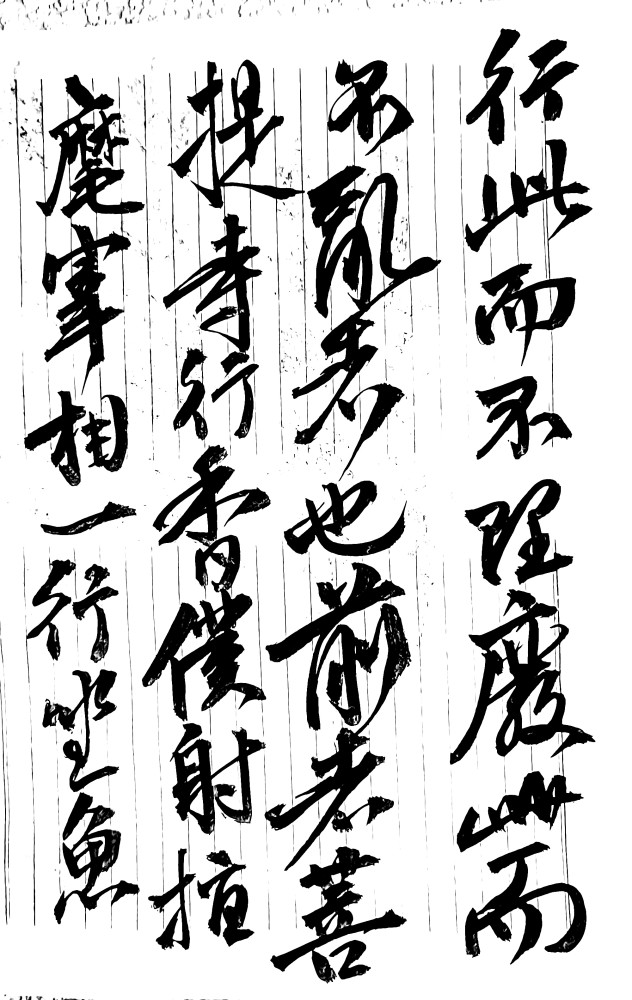 行此而不理廢此而
不亂者也前者菩
提寺行香僕射指
麾宰相一行坐魚